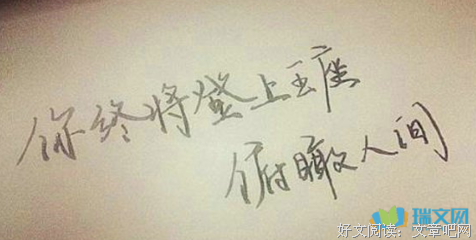 你终将登上王座
俯瞰人间
瑞文网
好文阅读：文章吧网